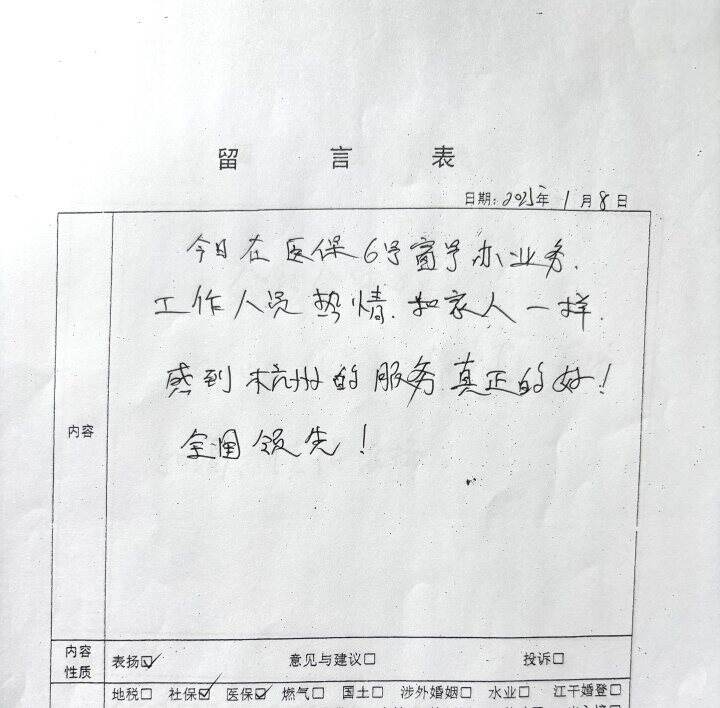 留言表
日期：2025年1月8日
今日在医保6号窗号办业务.
工作人员热情.如家人一样.
感到杭州的服务真正的好！
全国领先！
内容
内容性质
表扬☑ 意见与建议☐ 投诉☐
地税☐ 社保☑ 医保☑ 燃气☐ 国土☐ 涉外婚姻☐ 水业☐ 江干婚登☐